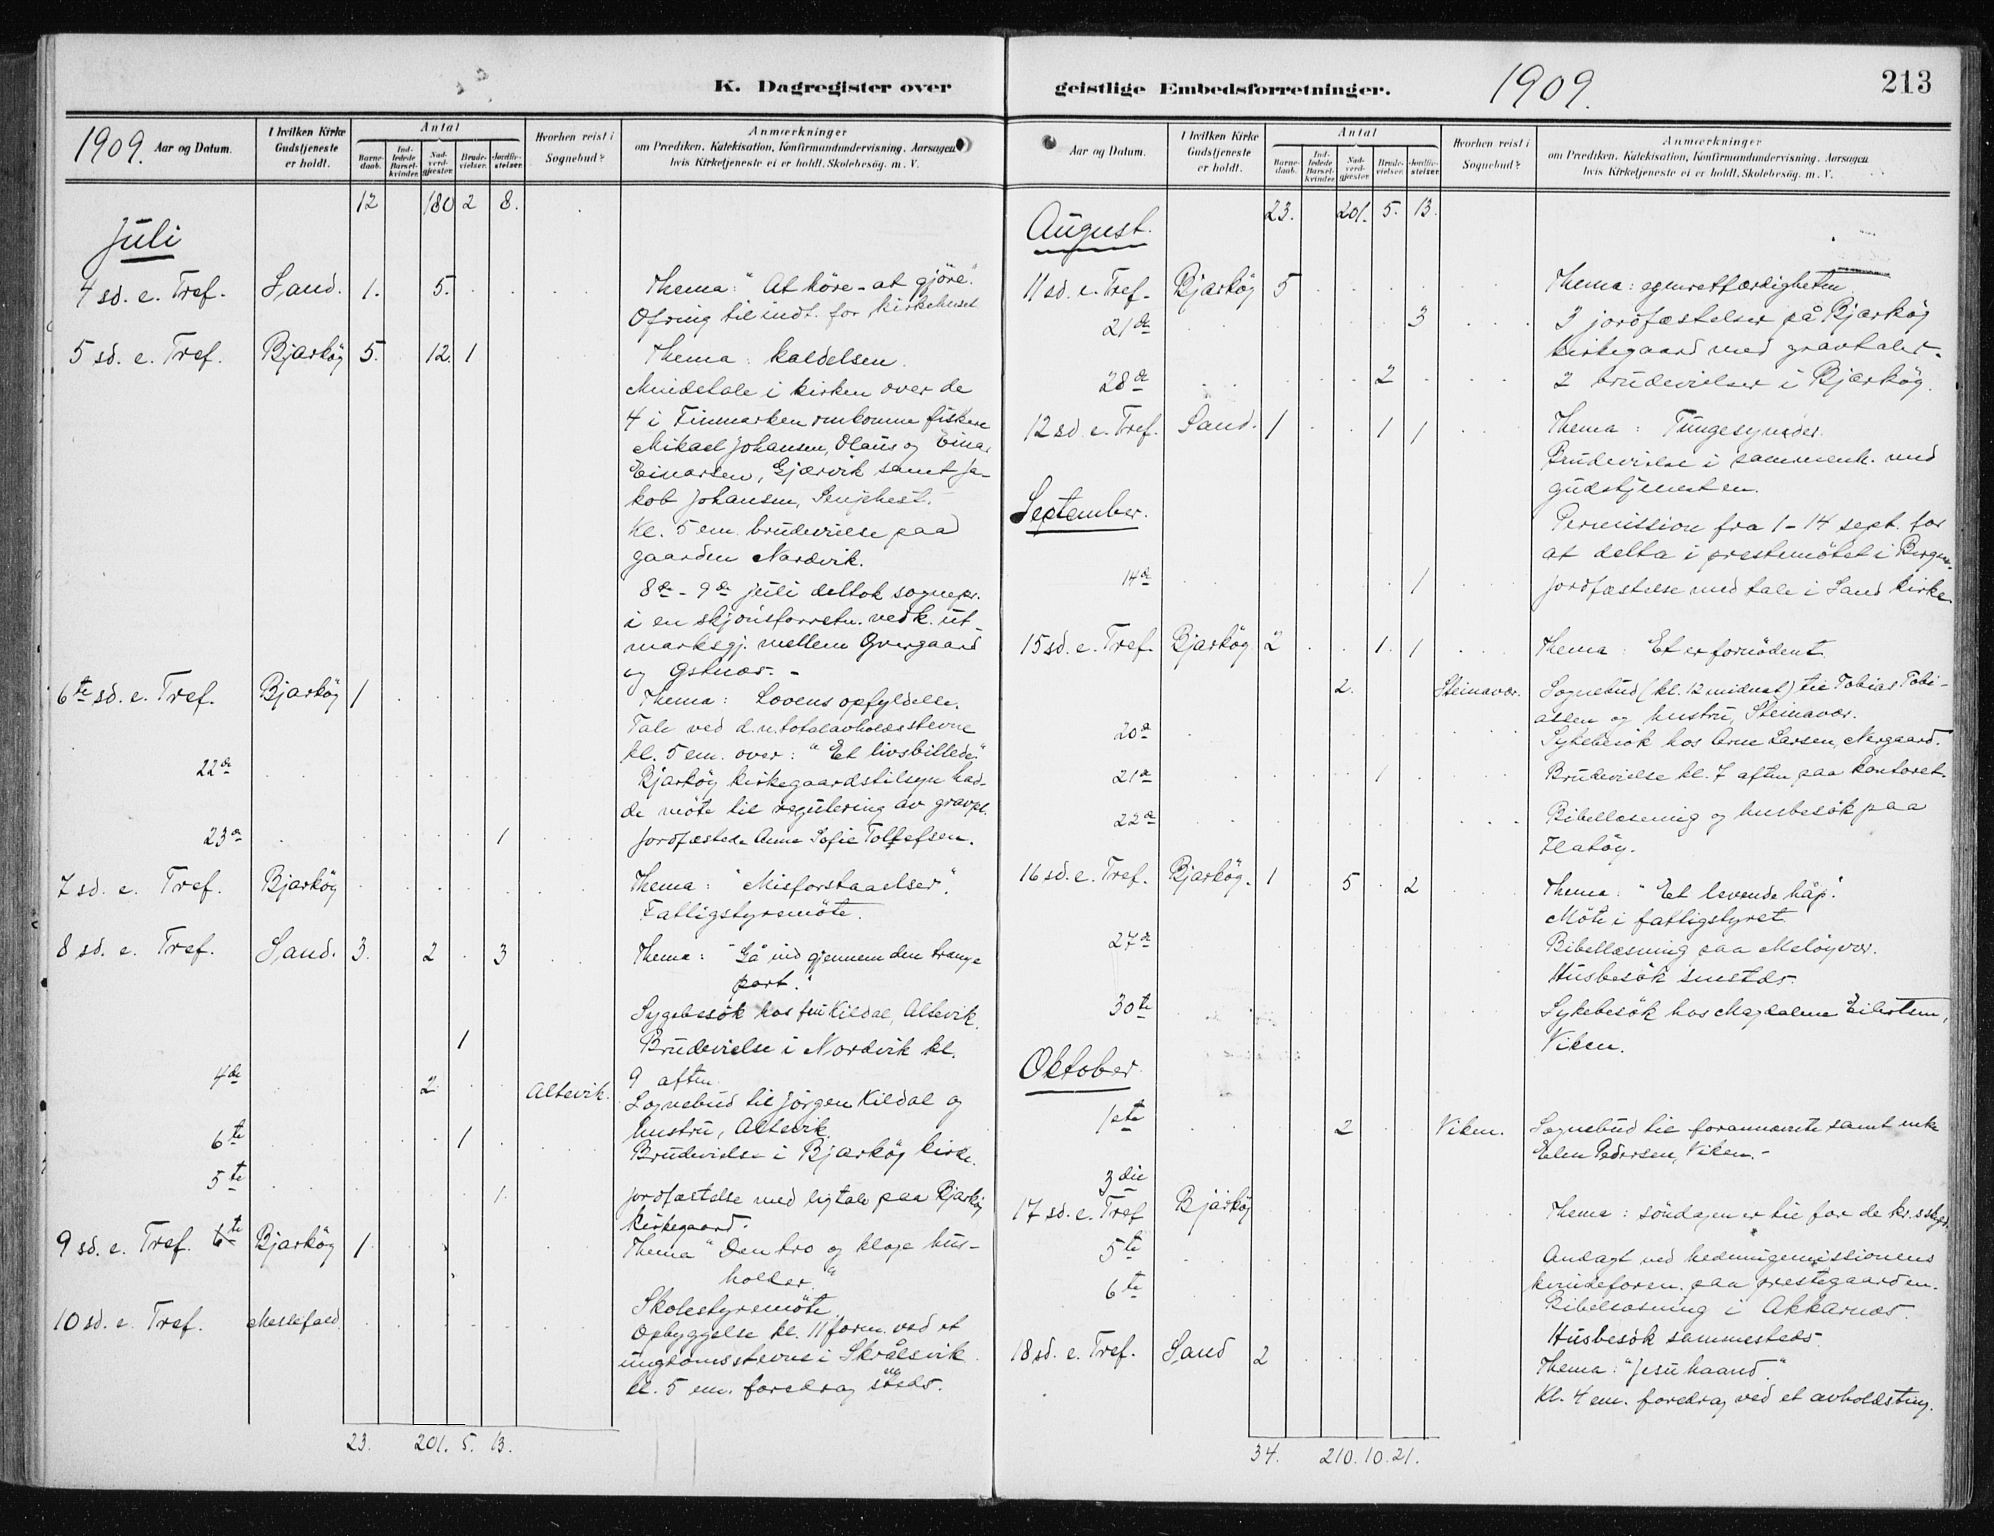 K. Dagregister over
1909. Aar og Datum.
I hvilken Kirke Gudstjeneste er holdt.
Antal
Barnedaab.
Indledede Barselkvinder.
Nadverdgjæster.
Brudevielser.
Jordfæstelser.
Hvorhen reist i Sognebud?
Anmærkninger
om Prædiken, Katekisation, Konfirmandundervisning, Aarsagen
hvis Kirketjeneste ei er holdt, Skolebesøg. m. V.
12 180 2 8.
Juli
4 sd. e. Tref. Sand. 1. 5. Thema: "At höre - at gjöre."
Ofring til indt. for kirkehuset
5 sd. e. Tref. Bjarköy 5. 12. 1 Thema: Kaldelsen.
Mindetale i kirken over de
4 i Finmarken omkomne fiskere
Mikael Johansen, Olaus og Einar
Einarsen, Gjærvik samt Ja-
kob Johansen, Senjehest.
Kl. 5 em. brudevielse paa
gaarden Nordvik.
8de - 9de juli deltok sognepr.
i en skjönsforretn. vedk. ut
marksgj. mellem Övergaard
og Östnæs. -
6te sd. e. Tref. Bjarköy 1 Thema: Lovens opfyldelse.
Tale ved d.n. totalavholdsstevne
kl. 5 em. over: "Et livsbillede"
22de Bjarköy kirkegaardstilsyn had-
de möte til regulering av gravpl.
23de 1 Jordfæstede Anne Sofie Tollefsen.
7 sd. e. Tref. Bjarköy Thema: "Misforstaaelser".
Fattigstyremöte.
8 sd. e. Tref. Sand. 3. 2 3 Thema: "Gå ind gjennem den trange
port."
Sygebesök hos fru Kildal, Altevik.
1 Brudevielse i Nordvik kl.
9 aften.
4de 2. Altevik. Sognebud til Jörgen Kildal og
hustru, Altevik.
6te 1 Brudevielse i Bjarköy kirke.
5te 1. Jordfæstelse med ligtale paa Bjarköy
kirkegaard.
9 sd. e. Tref. 6te Bjarköy 1 Thema "Den tro og kloge hus-
holder"
Skolestyremöte.
10 sd. e. Tref. Meslefald. Opbyggelse kl. 11 form. ved et
ungdomsstevne i Skrålsvik.
Kl. 5 em. foredrag steds.
23. 201. 5. 13.
geistlige Embedsforretninger. 1909. 213
Aar og Datum.
I hvilken Kirke Gudstjeneste er holdt.
Antal
Barnedaab.
Indledede Barselkvinder.
Nadverdgjæster.
Brudevielser.
Jordfæstelser.
Hvorhen reist i Sognebud?
Anmærkninger
om Prædiken, Katekisation, Konfirmandundervisning, Aarsagen
hvis Kirketjeneste ei er holdt, Skolebesøg. m. V.
23. 201. 5. 13.
August.
11 sd. e. Tref. Bjarköy 5 Thema: egenretfærdigheten.
21de 3 3 jordfæstelser på Bjarköy
kirkegaard med gravtaler.
28de 2 2 brudevielser i Bjarköy.
12 sd. e. Tref. Sand. 1 1 1 Thema: Tungesynder.
Brudevielse i sammenh. med
gudstjenesten.
September.
Permission fra 1-14 sept. for
at delta i prestemötet i Bergen.
14de 1 Jordfæstelse med tale i Sand kirke.
15 sd. e. Tref. Bjarköy 2 1. 1 Thema: Et er fornödent.
2. Steinavær. Sognebud (kl. 12 midnat) til Tobias Tobi-
assen og hustru, Steinavær.
20de Sykebesök hos Arne Larsen, Nergaard.
21de 1 Brudevielse kl. 7 aften paa kontoret.
22de Bibellæsning og husbesök paa
Flatöy.
16 sd. e. Tref. Bjarköy. 1 5 2 Thema: "Et levende håp".
Möte i fattigstyret.
27de Bibellæsning paa Meløyvær.
Husbesök smsteds.
30te Sykebesök hos Magdalene Eilertsen,
Viken.
Oktober.
1ste 2 Viken. Sognebud til forannævnte samt enke
Elen Pedersen, Viken. -
3die
17 sd. e. Tref Bjarköy Thema: söndagen er til for de kr. s skyld.
5te Andagt ved hedningemissionens
kvindeforen. paa prestegaarden.
6te Bibellæsning i Akkarnæs.
Husbesök sammesteds.
18 sd. e. Tref. Sand 2 Thema: "Jesu haand".
Kl. 4 em. foredrag ved et avholdsting.
34. 210. 10. 21.